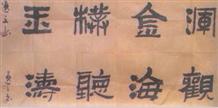 渾金樸玉
觀海聽濤